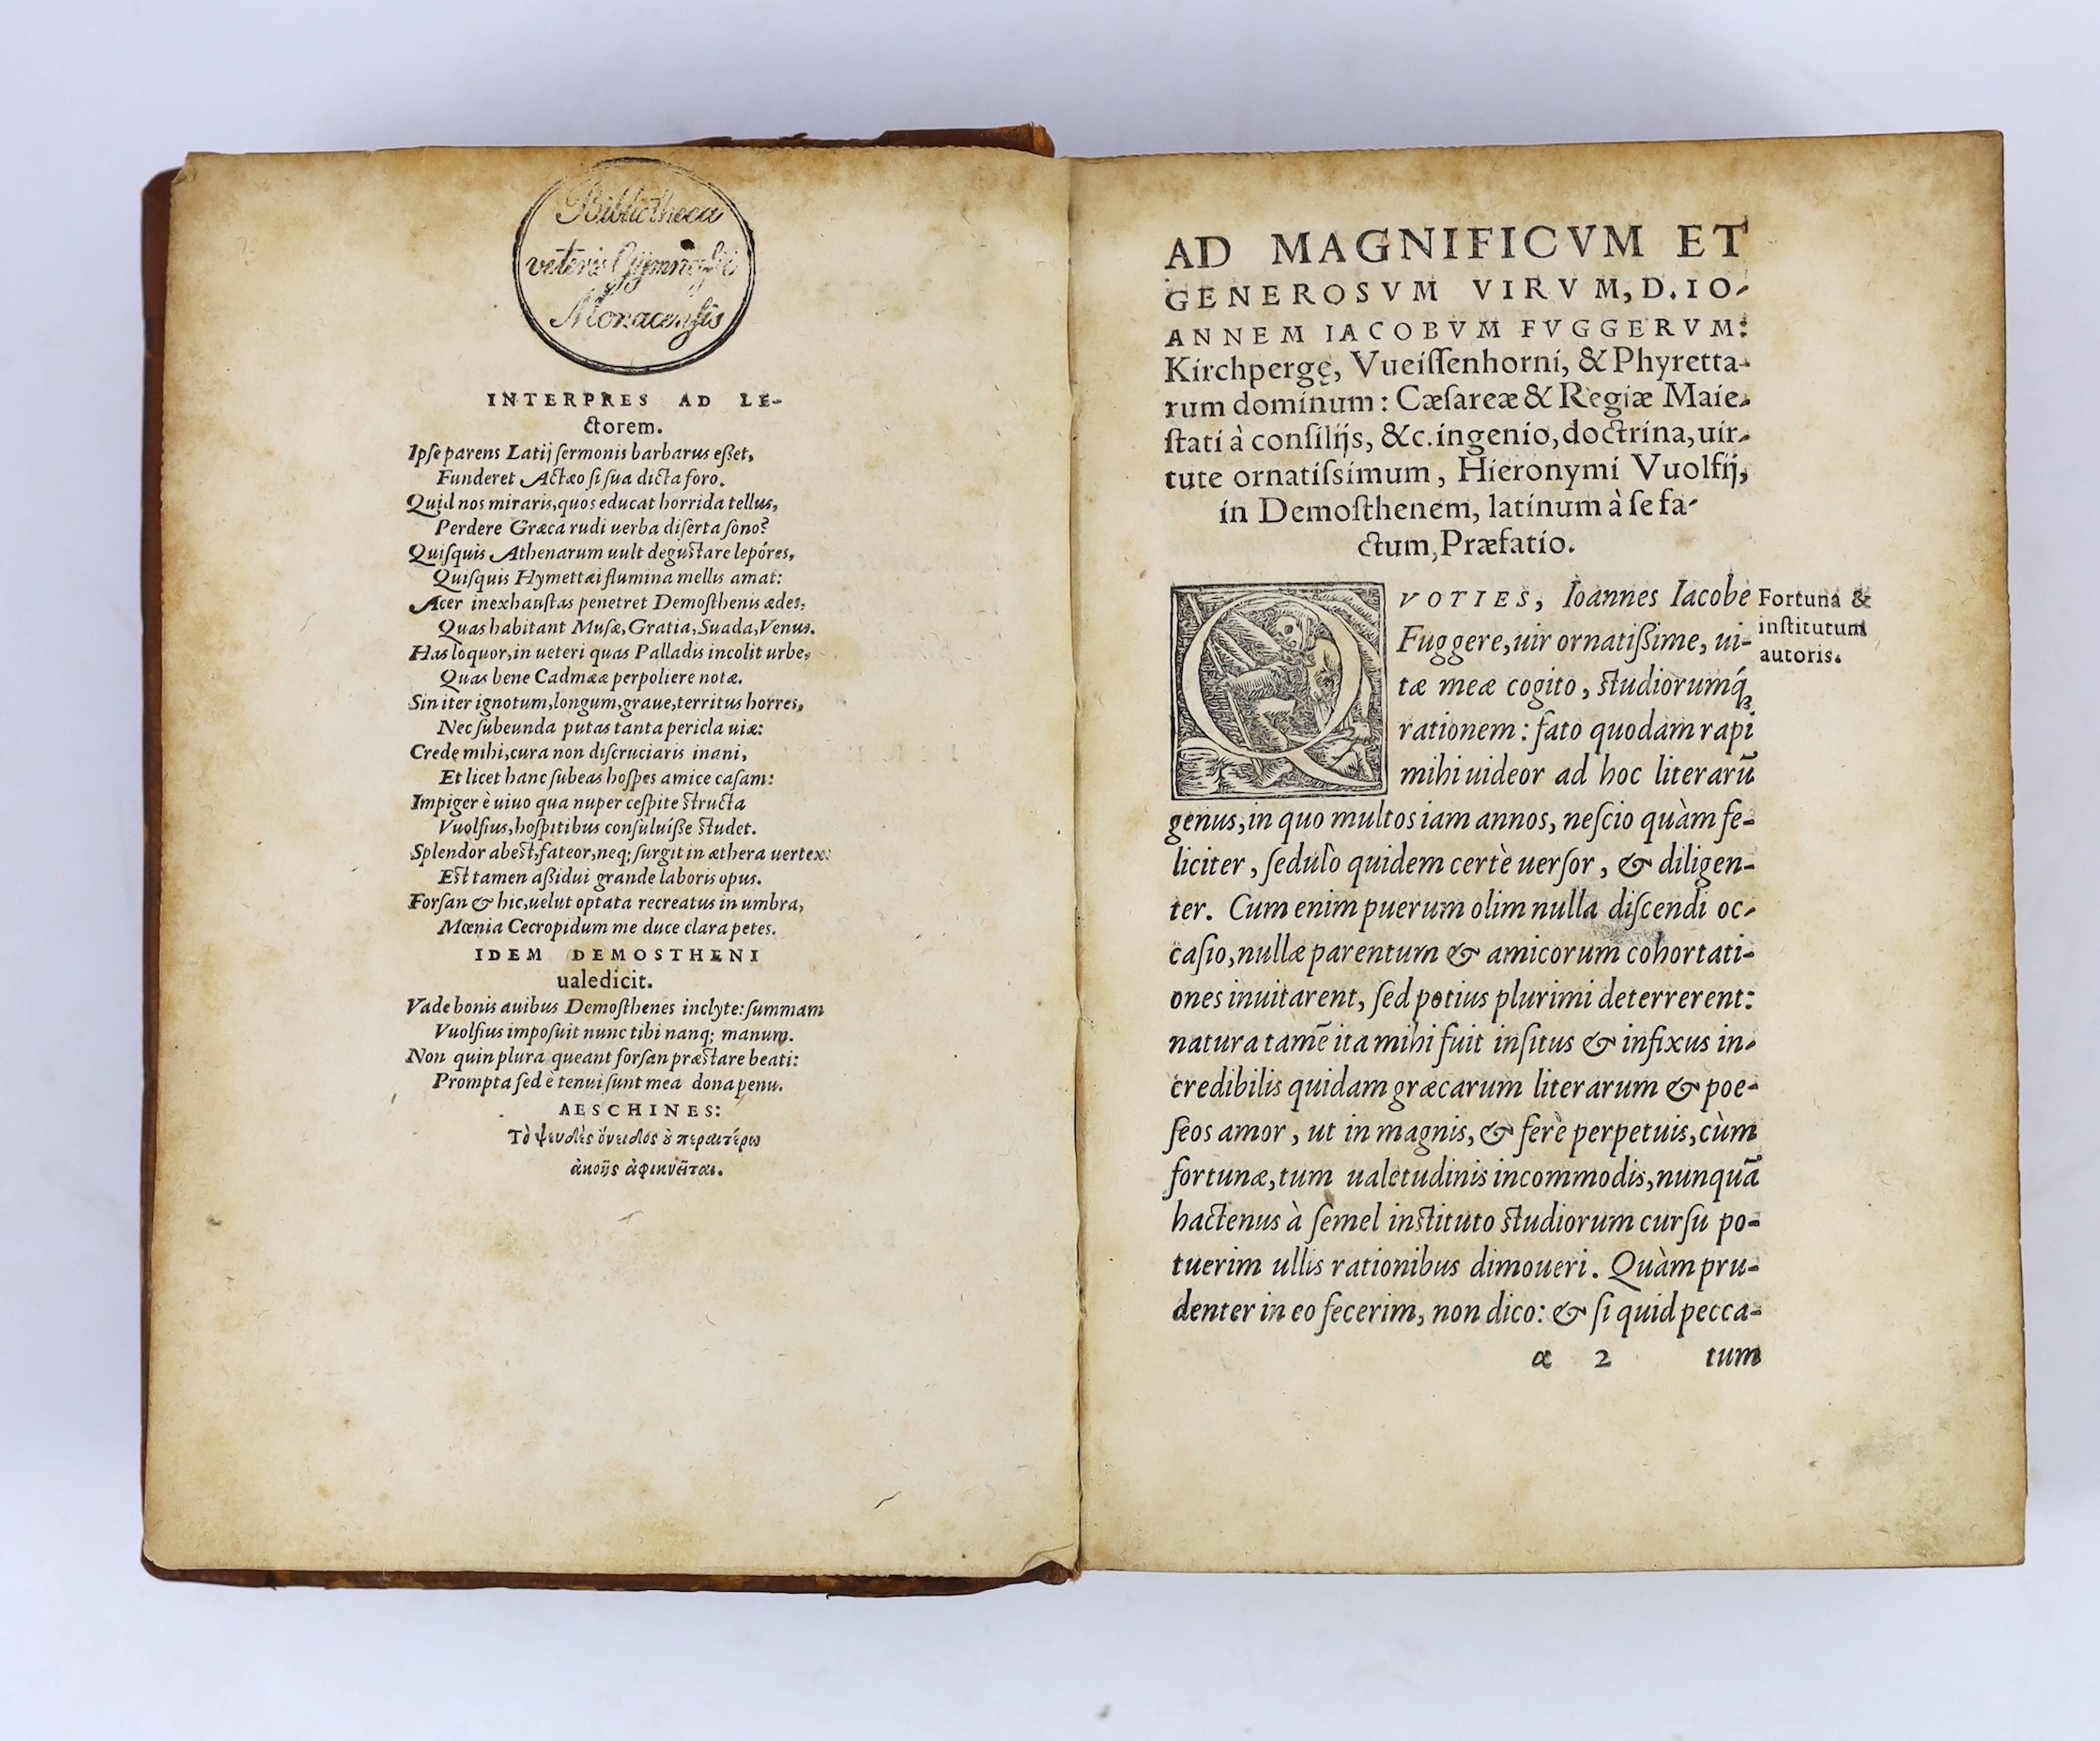 Bibliotheca
veteris Gymnasii
Monacensis
INTERPRES AD LE-
ctorem.
Ipſe parens Latij ſermonis barbarus eßet,
Funderet Actæo ſi ſua dicta foro.
Quid nos miraris, quos educat horrida tellus,
Perdere Græca rudi uerba diſerta ſono?
Quiſquis Athenarum uult deguſtare lepóres,
Quiſquis Hymettæi flumina mellis amat:
Acer inexhauſtas penetret Demoſthenis ædes,
Quas habitant Muſæ, Gratia, Suada, Venus.
Has loquor, in ueteri quas Palladis incolit urbe,
Quas bene Cadmææ perpoliere notæ.
Sin iter ignotum, longum, graue, territus horres,
Nec ſubeunda putas tanta pericla uiæ:
Crede mihi, cura non diſcruciaris inani,
Et licet hanc ſubeas hoſpes amice caſam:
Impiger è uiuo qua nuper ceſpite ſtructa
Vuolfius, hoſpitibus conſuluiße ſtudet.
Splendor abeſt, fateor, neq; ſurgit in æthera uertex:
Eſt tamen aßidui grande laboris opus.
Forſan & hic, uelut optata recreatus in umbra,
Mœnia Cecropidum me duce clara petes.
IDEM DEMOSTHENI
ualedicit.
Vade bonis auibus Demoſthenes inclyte: ſummam
Vuolfius impoſuit nunc tibi nanq; manum.
Non quin plura queant forſan præſtare beati:
Prompta ſed è tenui ſunt mea dona penu.
AESCHINES:
Τὸ ψευδὲς ὄνειδος ȣ̓ περαιτέρω
ἀκοῆς ἀφικνεῖται.
AD MAGNIFICVM ET
GENEROSVM VIRVM, D. IO-
ANNEM IACOBVM FVGGERVM:
Kirchpergę, Vueiſſenhorni, & Phyretta-
rum dominum: Cæſareæ & Regiæ Maie-
ſtati à conſilijs, &c. ingenio, doctrina, uir-
tute ornatiſsimum, Hieronymi Vuolfij,
in Demoſthenem, latinum à ſe fa-
ctum, Præfatio.
QVOTIES, Ioannes Iacobe
Fuggere, uir ornatißime, ui-
tæ meæ cogito, ſtudiorumq́ꝫ
rationem: fato quodam rapi
mihi uideor ad hoc literarū
genus, in quo multos iam annos, neſcio quàm fe-
liciter, ſedulò quidem certè uerſor, & diligen-
ter. Cum enim puerum olim nulla diſcendi oc-
caſio, nullæ parentum & amicorum cohortati-
ones inuitarent, ſed potius plurimi deterrerent:
natura tamē ita mihi fuit inſitus & infixus in-
credibilis quidam græcarum literarum & poe-
ſeos amor, ut in magnis, & ferè perpetuis, cùm
fortunæ, tum ualetudinis incommodis, nunquā
hactenus à ſemel inſtituto ſtudiorum curſu po-
tuerim ullis rationibus dimoueri. Quàm pru-
denter in eo fecerim, non dico: & ſi quid pecca-
α 2 tum
Fortuna &
inſtitutum
autoris.